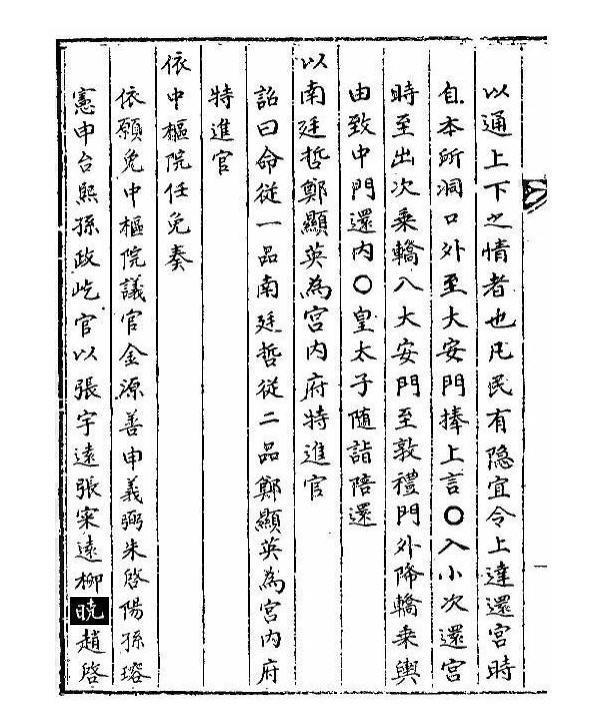 以通上下之情者也凡民有隐宜令上達還宮時
自本所洞口外至大安門捧上言○入小次還宮
時至出次乘轎入大安門至敦禮門外降轎乘輿
由致中門還內○皇太子隨詣陪還
以南廷哲鄭顯英為宮內府特進官
詔曰命從一品南廷哲從二品鄭顯英為宮內府
特進官
依中樞院任免奏
依願免中樞院議官金源善申義弼朱啓陽孫瑢
憲申台熙孫政屹官以張宇遠張寀遠柳曉趙啓